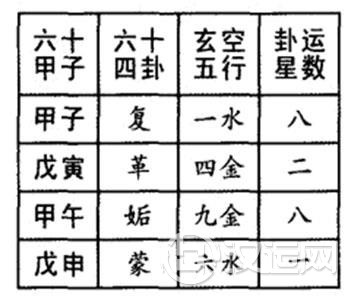 六十 六十 玄空 卦运
甲子 四卦 五行 星数
甲子 复 一水 八
戊寅 革 四金 二
甲午 姤 九金 八
戊申 蒙 六水 一
汉运网